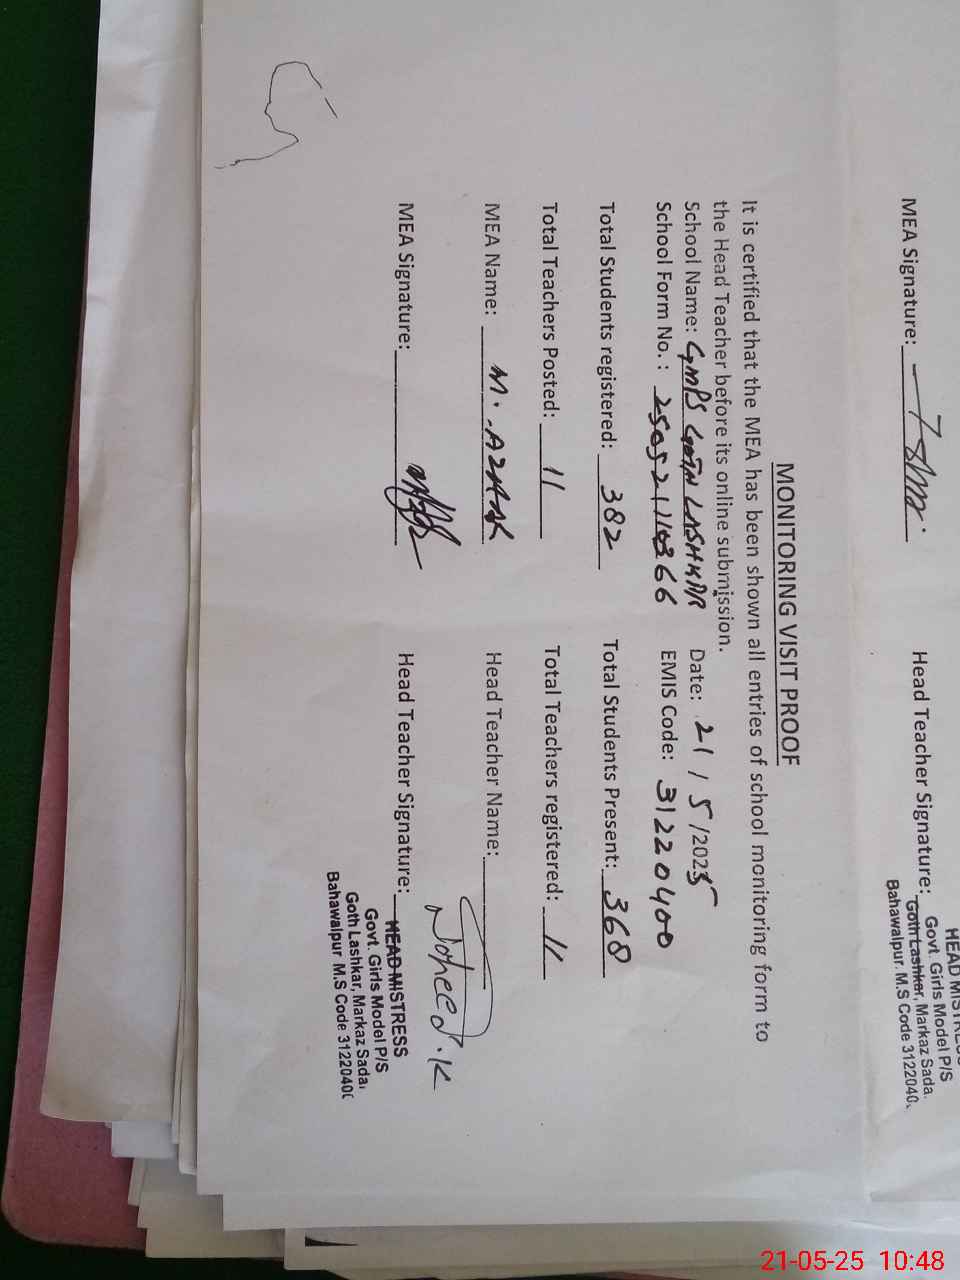 MEA Signature:
Head Teacher Signature:
HEAD MISTRESS
Govt. Girls Model P/S
Goth Lashkar, Markaz Sada
Bahawalpur. M.S Code 3122040
MONITORING VISIT PROOF
It is certified that the MEA has been shown all entries of school monitoring form to
the Head Teacher before its online submission.
School Name: GMPS GOTH LASHKAR Date: 21/5/2025
School Form No. : EMIS Code: 31220400
Total Students registered: 382 Total Students Present: 368
Total Teachers Posted: 11 Total Teachers registered: 11
MEA Name: M. AZHAR Head Teacher Name:
MEA Signature: Head Teacher Signature: Naheed.K
HEAD MISTRESS
Govt. Girls Model P/S
Goth Lashkar, Markaz Sadar
Bahawalpur M.S Code 3122040
21-05-25 10:48